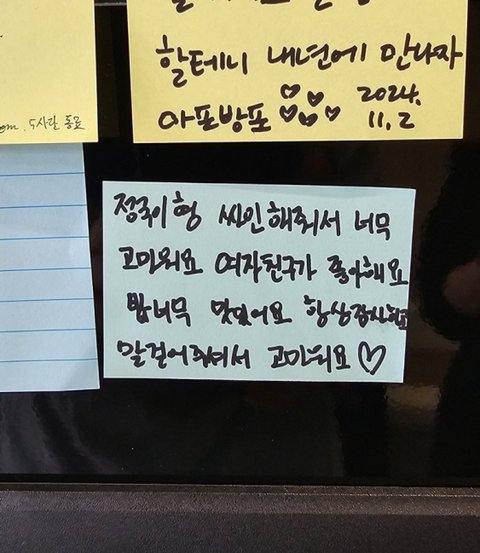 할테니 내년에 만나자
아포방포 2024.
11.2
om. 우사랑 동료
정국이형 싸인해줘서 너무
고마워요 여자친구가 좋아해요
밥너무 맛있어요 항상감사하고
말걸어주셔서 고마워요